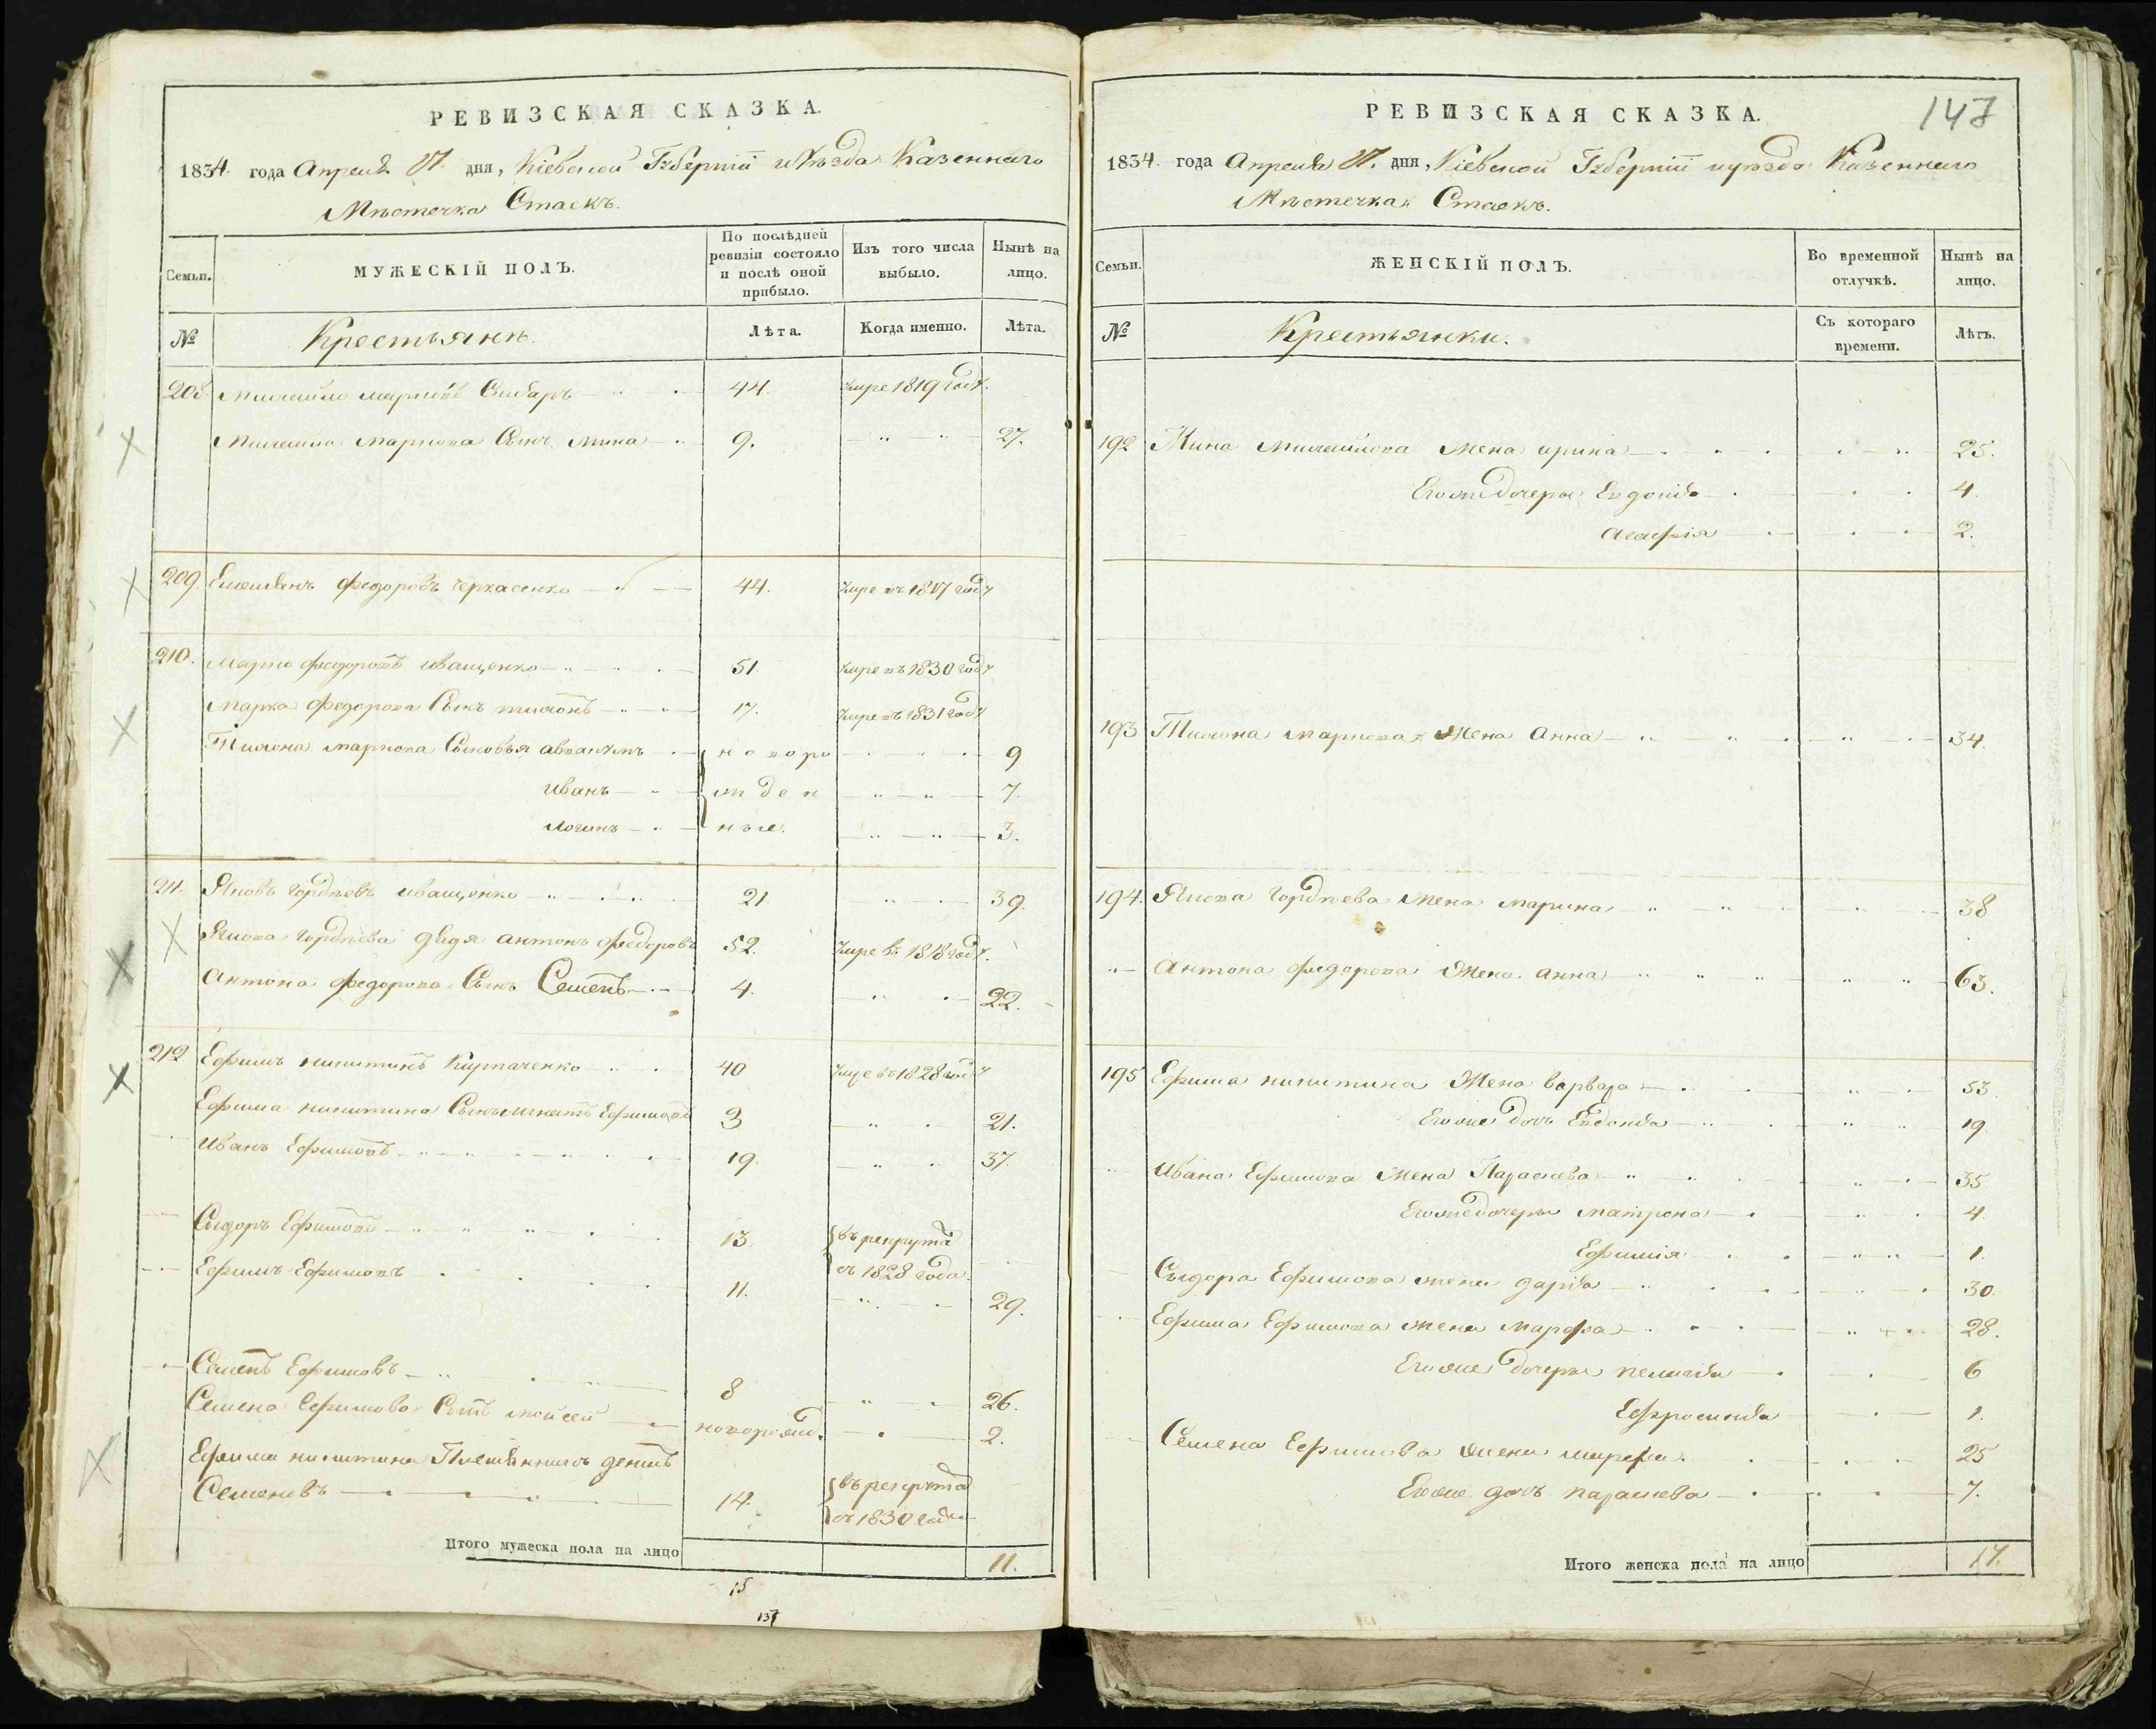 РЕВИЗСКАЯ СКАЗКА.
1834 года Апреля дня, Кіевской Губерніи и уѣзда Казеннаго
Мѣстечка Стаекъ.
Семьи.
МУЖЕСКІЙ ПОЛЪ.
По послѣдней ревизіи состояло и послѣ оной прибыло.
Изъ того числа выбыло.
Нынѣ на лицо.
№
Крестьяне.
Лѣта.
Когда именно.
Лѣта.
208 44. умре 1819 году.
Михайла Маркова Сынъ Мина 9. 27.
209. Емельянъ Федоровъ Черкасенко 44. умре въ 1817 году
210. Марко Федоровъ Иващенко 51. умре въ 1830 году
Марка Федорова Сынъ Тимонъ 17. умре въ 1831 году
Тимона Маркова Сыновья новоро 9
Иванъ жден 7.
Логинъ ные. 3.
211. Яковъ Гордѣевъ Иващенко 21 39.
Якова Гордѣева дядя Антонъ Федоровъ 52. умре въ 1818 году.
Антона Федорова Сынъ Семенъ 4. 22.
212 Ефимъ Никитинъ Кирпаченко 40 умре въ 1828 году
Ефима Никитина Сынъ Игнатъ Ефимовъ 3 21.
Иванъ Ефимовъ 19. 37.
Сидоръ Ефимовъ 13. въ рекрута
съ 1828 года.
Ефимъ Ефимовъ 11. 29.
Семенъ Ефимовъ 8 26.
Семена Ефимова Сынъ Мойсей новорожд. 2.
Ефима Никитина Племянникъ Денисъ
Семеновъ 14. въ рекрута
съ 1830 года
Итого мужеска пола на лицо 11.
15
137
147
РЕВИЗСКАЯ СКАЗКА.
1834. года Апреля дня, Кіевской Губерніи и уѣзда Казеннаго
Мѣстечка Стаекъ.
Семьи.
ЖЕНСКІЙ ПОЛЪ.
Во временной отлучкѣ.
Нынѣ на лицо.
№
Крестьянки.
Съ котораго времени.
Лѣтъ.
192 Мина Михайлова Жена Ирина 25.
Егоже дочеры Евдокія 4.
Агафія 2.
193 Тимона Маркова Жена Анна 34.
194. Якова Гордѣева Жена Марина 38
Антона Федорова Жена Анна 63.
195 Ефима Никитина Жена Варвара 53.
Егоже дочь Евдокія 19
Ивана Ефимова Жена Параскева 35
Егоже дочеры Матрона 4.
Ефимія 1.
Сидора Ефимова жена Дарія 30.
Ефима Ефимова жена Марфа 28.
Егоже дочеры Пелагія 6
Ефросинія 1.
Семена Ефимова жена Марфа 25
Егоже дочь Параскева 7.
Итого женска пола на лицо 17.